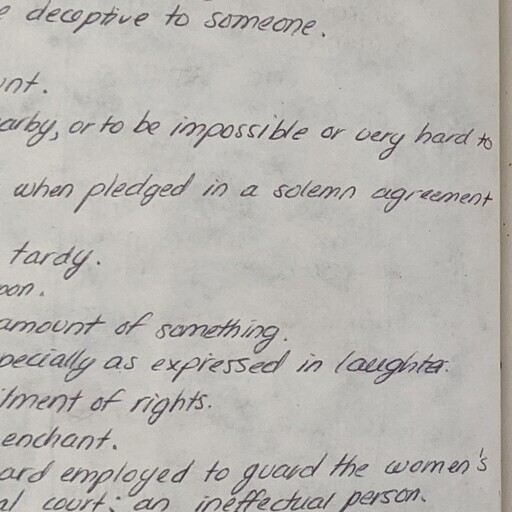 e deceptive to someone.
unt.
arby, or to be impossible or very hard to
when pledged in a solemn agreement
tardy.
oon.
amount of something.
pecially as expressed in laughter.
ilment of rights.
enchant.
ard employed to guard the women's
al court; an ineffectual person.